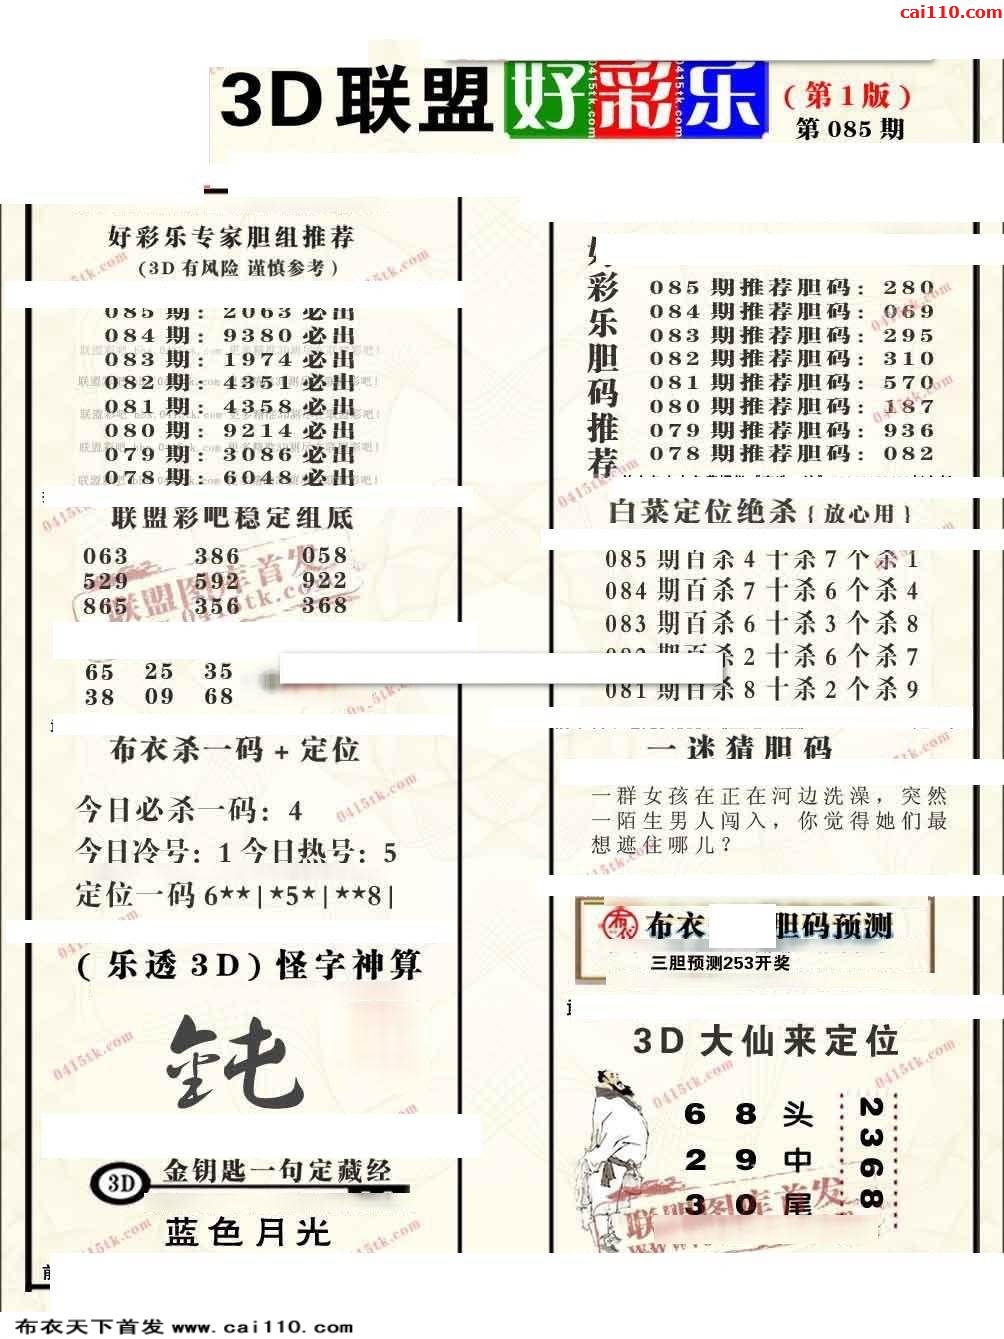 cai110.com
3D联盟好彩乐
(第1版)
第085期
好彩乐专家胆组推荐
(3D有风险 谨慎参考)
085期: 2063必出
084期: 9380必出
083期: 1974必出
082期: 4351必出
081期: 4358必出
080期: 9214必出
079期: 3086必出
078期: 6048必出
联盟彩吧稳定组底
063 386 058
529 592 922
865 356 368
65 25 35
38 09 68
布衣杀一码+定位
今日必杀一码: 4
今日冷号: 1 今日热号: 5
定位一码 6★★|★5★|★★8|
(乐透3D)怪字神算
鈍
3D 金钥匙一句定藏经
蓝色月光
彩乐胆码推荐
085期推荐胆码: 280
084期推荐胆码: 069
083期推荐胆码: 295
082期推荐胆码: 310
081期推荐胆码: 570
080期推荐胆码: 187
079期推荐胆码: 936
078期推荐胆码: 082
白菜定位绝杀{放心用}
085期百杀4十杀7个杀1
084期百杀7十杀6个杀4
083期百杀6十杀3个杀8
杀2十杀6个杀7
081期百杀8十杀2个杀9
一迷猜胆码
一群女孩在正在河边洗澡，突然
一陌生男人闯入，你觉得她们最
想遮住哪儿？
布衣 布衣 胆码预测
三胆预测253开奖
3D大仙来定位
6 8 头
2 9 中
3 0 尾
2368
联盟图库首发
0415tk.com
布衣天下首发 www.cai110.com